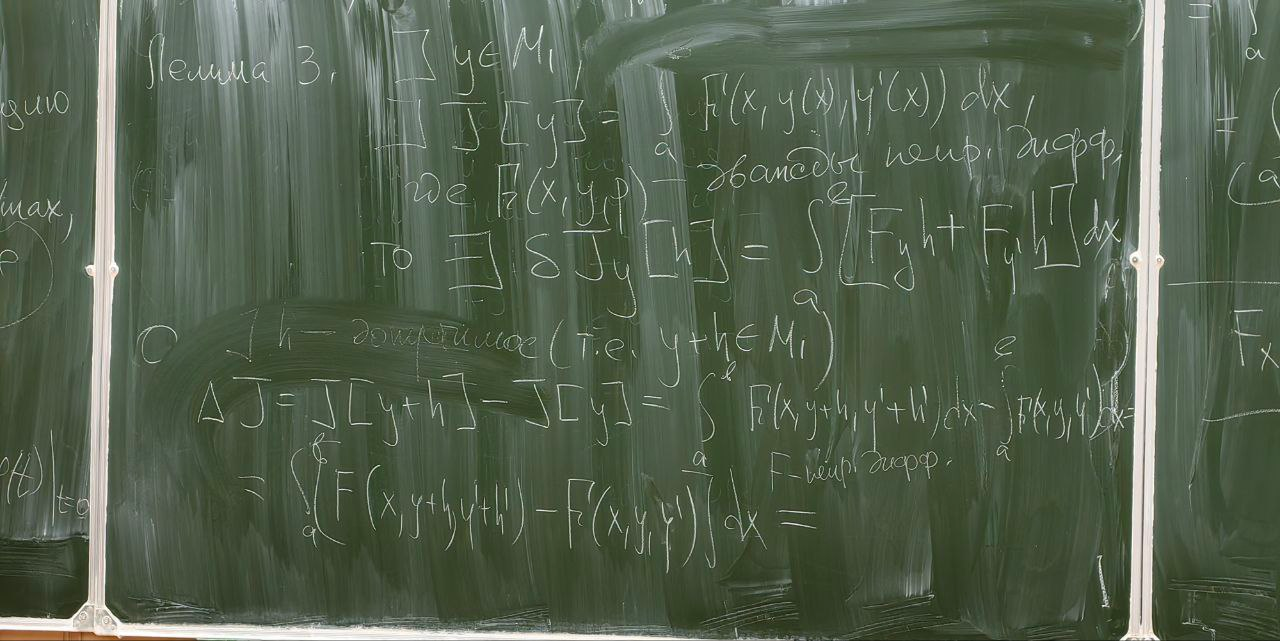 Лемма 3. ] y ∈ M₁,
] J[y] = ∫ₐ F(x, y(x), y'(x)) dx,
где F(x, y, p) – дважды непр. дифф.
то ∃ δJ_y[h] = ∫ₐᵇ [F_y h + F_y' h'] dx
] h – допустимое (т.е. y+h ∈ M₁)
ΔJ = J[y+h] – J[y] = ∫ₐᵇ F(x, y+h, y'+h') dx – ∫ₐᵇ F(x, y, y') dx =
F – непр. дифф.
= ∫ₐᵇ (F(x, y+h, y'+h') – F(x, y, y')) dx =
max,
(t)|t=0
= ∫ₐ
= (
(a
Fₓ